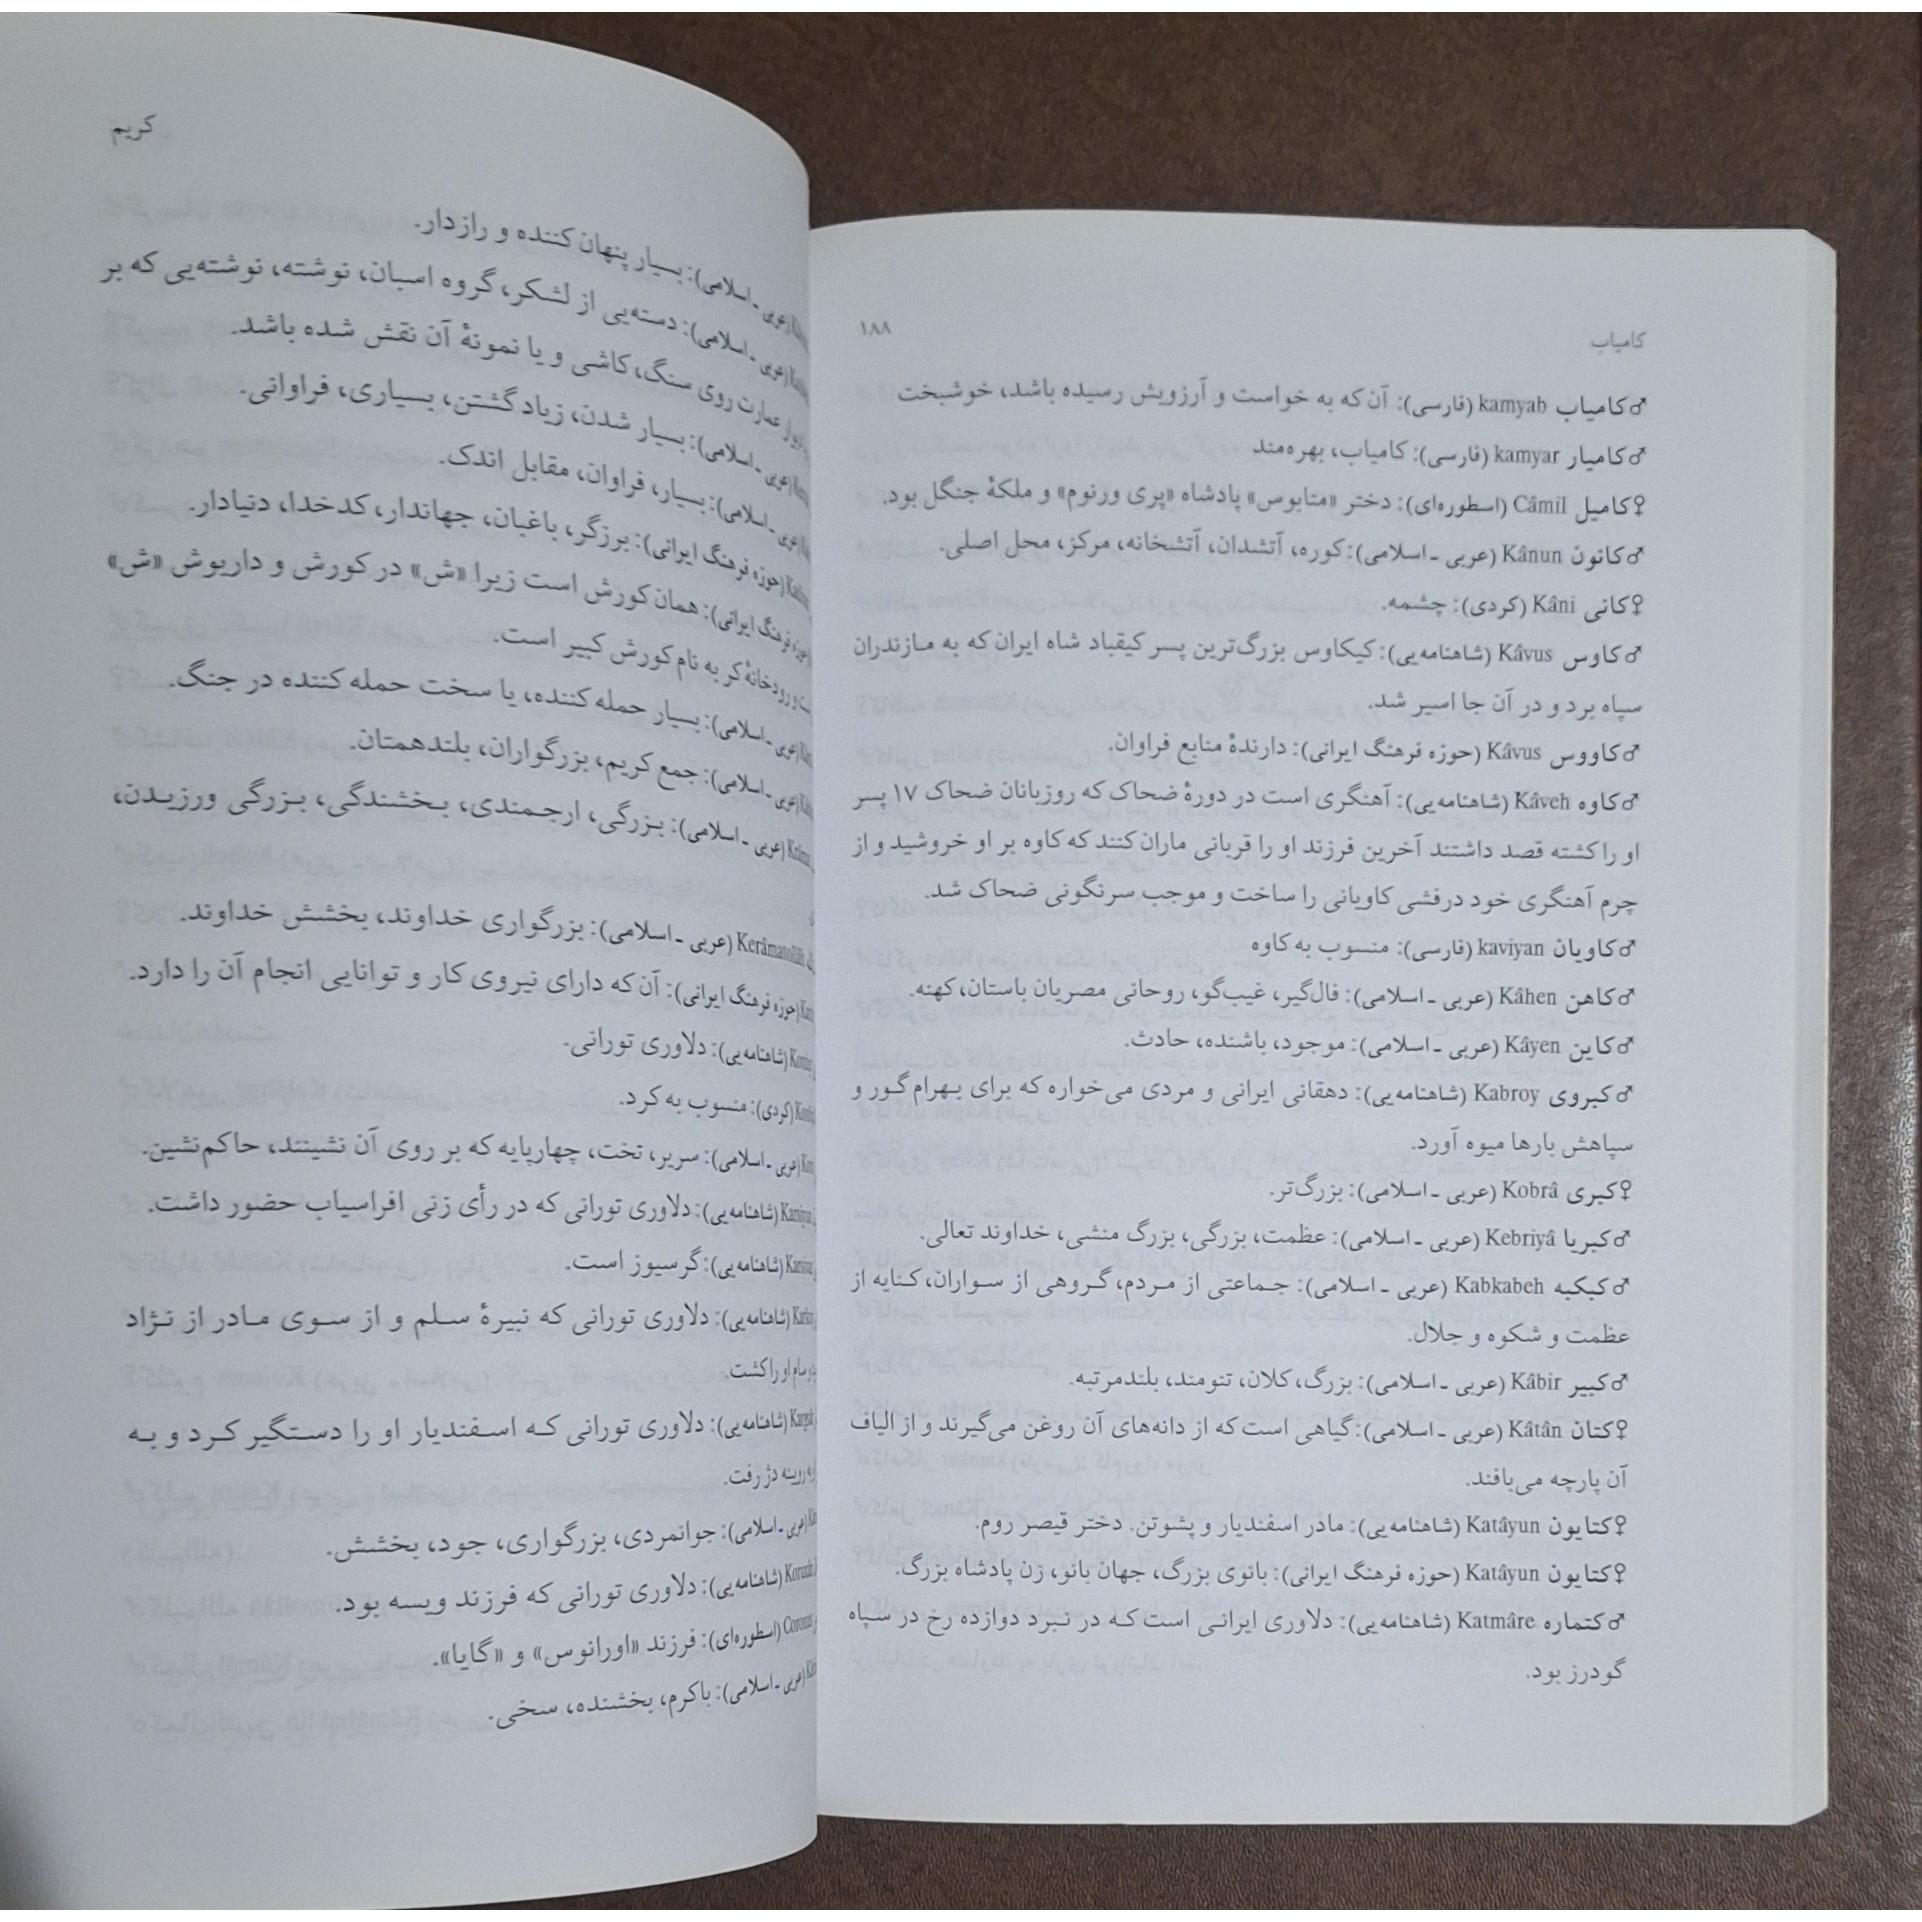 کامیاب
۱۸۸
♂کامیاب kamyab (فارسی): آن که به خواست و آرزویش رسیده باشد، خوشبخت
♂کامیار kamyar (فارسی): کامیاب، بهره‌مند
♀کامیل Câmil (اسطوره‌ای): دختر «متابوس» پادشاه «پری ورنوم» و ملکهٔ جنگل بود.
♂کانون Kânun (عربی ـ اسلامی): کوره، آتشدان، آتشخانه، مرکز، محل اصلی.
♀کانی Kâni (کردی): چشمه.
♂کاوس Kâvus (شاهنامه‌یی): کیکاوس بزرگ‌ترین پسر کیقباد شاه ایران که به مازندران
سپاه برد و در آن جا اسیر شد.
♂کاووس Kâvus (حوزه فرهنگ ایرانی): دارندهٔ منابع فراوان.
♂کاوه Kâveh (شاهنامه‌یی): آهنگری است در دورهٔ ضحاک که روزبانان ضحاک ۱۷ پسر
او را کشته قصد داشتند آخرین فرزند او را قربانی ماران کنند که کاوه بر او خروشید و از
چرم آهنگری خود درفشی کاویانی را ساخت و موجب سرنگونی ضحاک شد.
♂کاویان kaviyan (فارسی): منسوب به کاوه
♂کاهن Kâhen (عربی ـ اسلامی): فال‌گیر، غیب‌گو، روحانی مصریان باستان، کهنه.
♂کاین Kâyen (عربی ـ اسلامی): موجود، باشنده، حادث.
♂کبروی Kabroy (شاهنامه‌یی): دهقانی ایرانی و مردی می‌خواره که برای بهرام گور و
سپاهش بارها میوه آورد.
♀کبری Kobrâ (عربی ـ اسلامی): بزرگ‌تر.
♂کبریا Kebriyâ (عربی ـ اسلامی): عظمت، بزرگی، بزرگ منشی، خداوند تعالی.
♂کبکبه Kabkabeh (عربی ـ اسلامی): جماعتی از مردم، گروهی از سواران، کنایه از
عظمت و شکوه و جلال.
♂کبیر Kâbir (عربی ـ اسلامی): بزرگ، کلان، تنومند، بلندمرتبه.
♀کتان Kâtân (عربی ـ اسلامی): گیاهی است که از دانه‌های آن روغن می‌گیرند و از الیاف
آن پارچه می‌بافند.
♀کتایون Katâyun (شاهنامه‌یی): مادر اسفندیار و پشوتن. دختر قیصر روم.
♀کتایون Katâyun (حوزه فرهنگ ایرانی): بانوی بزرگ، جهان بانو، زن پادشاه بزرگ.
♂کتماره Katmâre (شاهنامه‌یی): دلاوری ایرانی است که در نبرد دوازده رخ در سپاه
گودرز بود.
کریم
(عربی ـ اسلامی): بسیار پنهان کننده و رازدار.
(عربی ـ اسلامی): دسته‌یی از لشکر، گروه اسبان، نوشته، نوشته‌یی که بر
عمارت روی سنگ، کاشی و یا نمونهٔ آن نقش شده باشد.
(عربی ـ اسلامی): بسیار شدن، زیاد گشتن، بسیاری، فراوانی.
(عربی ـ اسلامی): بسیار، فراوان، مقابل اندک.
(حوزه فرهنگ ایرانی): برزگر، باغبان، جهاندار، کدخدا، دنیادار.
(حوزه فرهنگ ایرانی): همان کورش است زیرا «ش» در کورش و داریوش «ش»
و رودخانهٔ کر به نام کورش کبیر است.
(عربی ـ اسلامی): بسیار حمله کننده، یا سخت حمله کننده در جنگ.
(عربی ـ اسلامی): جمع کریم، بزرگواران، بلندهمتان.
(عربی ـ اسلامی): بزرگی، ارجمندی، بخشندگی، بزرگی ورزیدن،
Kerâmatollâh (عربی ـ اسلامی): بزرگواری خداوند، بخشش خداوند.
(حوزه فرهنگ ایرانی): آن که دارای نیروی کار و توانایی انجام آن را دارد.
(شاهنامه‌یی): دلاوری تورانی.
(کردی): منسوب به کرد.
(عربی ـ اسلامی): سریر، تخت، چهارپایه که بر روی آن نشینند، حاکم‌نشین.
(شاهنامه‌یی): دلاوری تورانی که در رأی زنی افراسیاب حضور داشت.
(شاهنامه‌یی): گرسیوز است.
(شاهنامه‌یی): دلاوری تورانی که نبیرهٔ سلم و از سوی مادر از نژاد
سام او را کشت.
(شاهنامه‌یی): دلاوری تورانی که اسفندیار او را دستگیر کرد و به
رویینه دژ رفت.
(عربی ـ اسلامی): جوانمردی، بزرگواری، جود، بخشش.
(شاهنامه‌یی): دلاوری تورانی که فرزند ویسه بود.
(اسطوره‌ای): فرزند «اورانوس» و «گایا».
(عربی ـ اسلامی): باکرم، بخشنده، سخی.